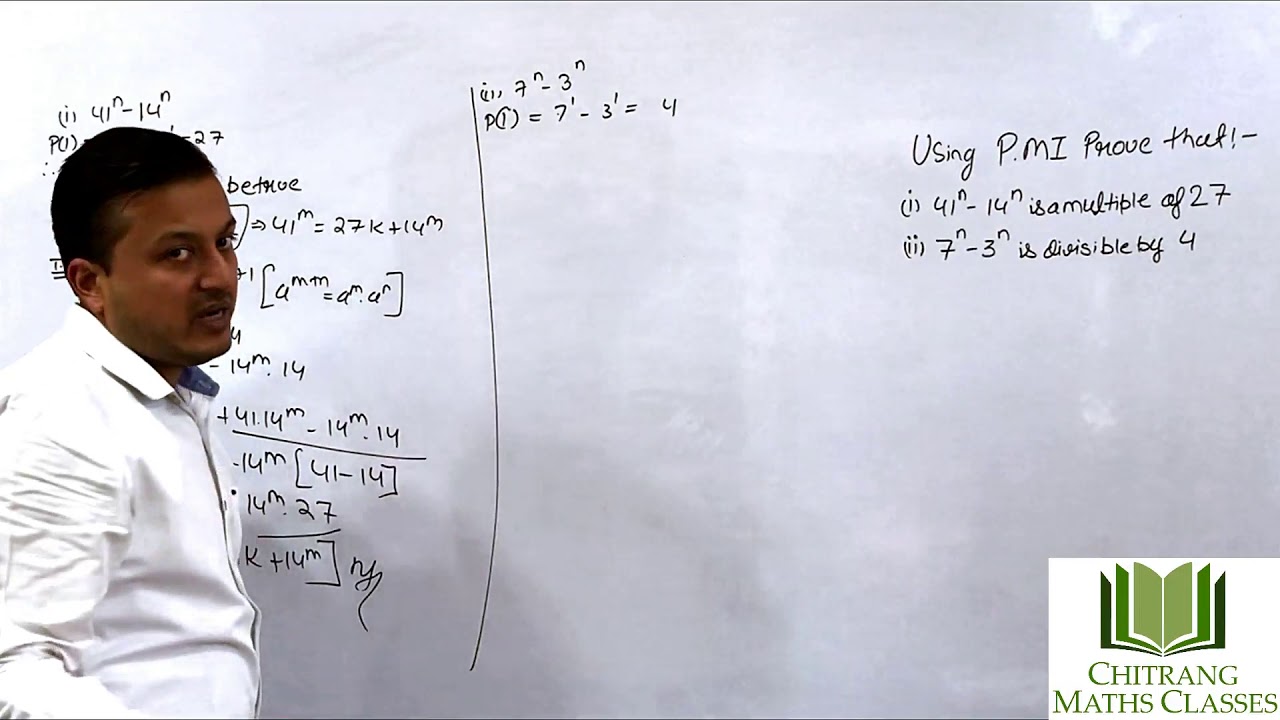 (i) 41ⁿ - 14ⁿ
P(1) = 27
be true
⇒ 41ᵐ = 27k + 14ᵐ
+1 [aᵐ⁺ⁿ = aᵐ. aⁿ]
- 14ᵐ. 14
+ 41.14ᵐ - 14ᵐ. 14
14ᵐ [41 - 14]
14ᵐ. 27
k + 14ᵐ]
(ii), 7ⁿ - 3ⁿ
P(1) = 7¹ - 3¹ = 4
Using P.MI Prove that! -
(i) 41ⁿ - 14ⁿ is a multiple of 27
(ii) 7ⁿ - 3ⁿ is divisible by 4
CHITRANG
MATHS CLASSES